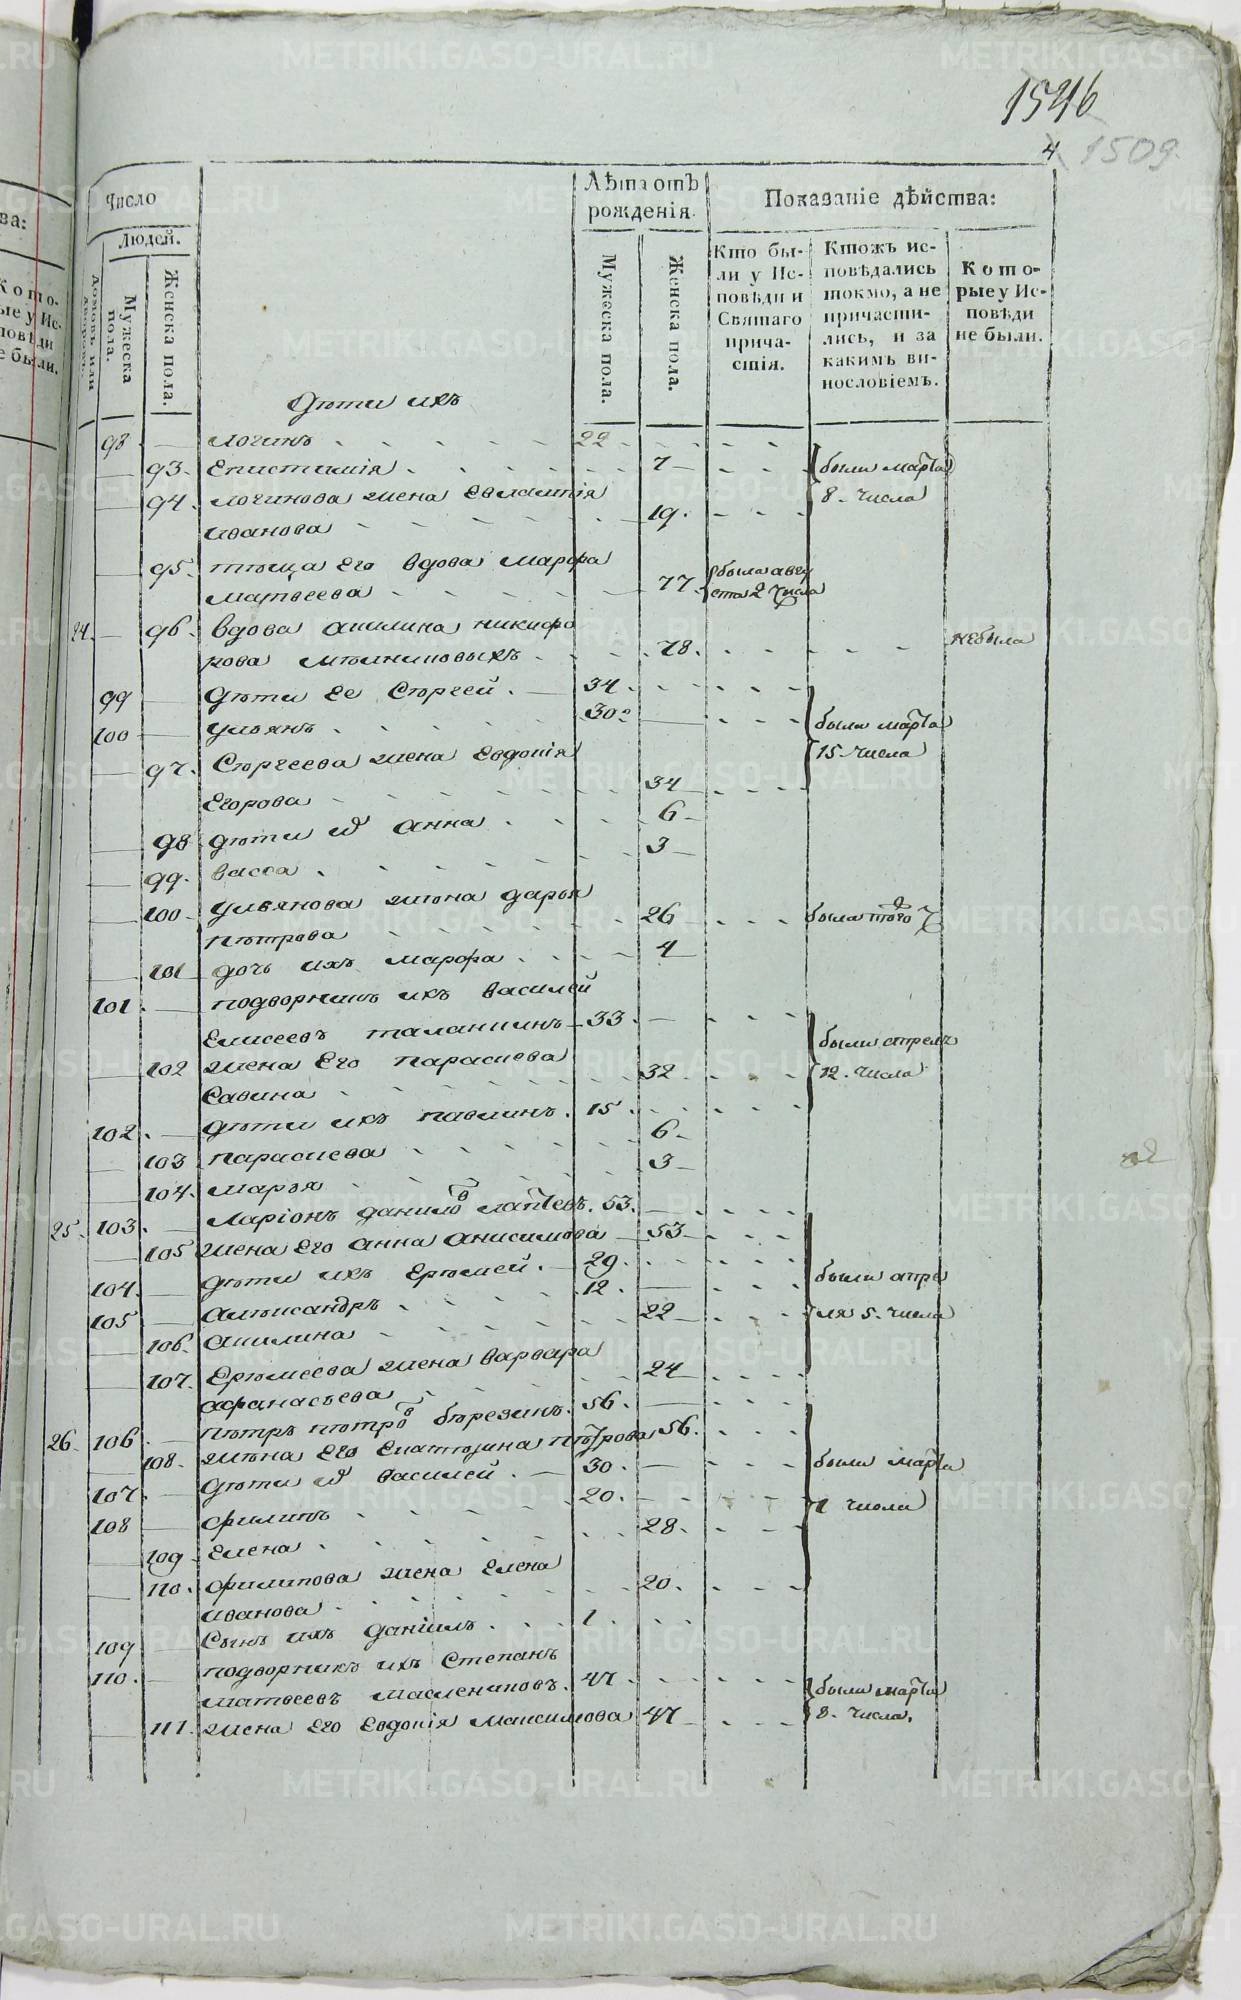 1546
4
1509.
Число
Людей.
Домовъ или дворовъ.
Мужеска пола.
Женска пола.
Лѣта отъ рожденія.
Мужеска пола.
Женска пола.
Показаніе дѣйства:
Кто бы-
ли у Ис-
повѣди и
Святаго
прича-
стія.
Ктожъ ис-
повѣдались
токмо, а не
причасти-
лись, и за
какимъ ви-
нословіемъ.
Кото-
рые у Ис-
повѣди
не были.
дѣти ихъ
98 логинъ 22
93. Епистимія 7 были марта
94. логинова жена Евлампія 8. числа
иванова 19.
95. тѣща его вдова марфа была авгу
матвеева 77. ста 2 числа
24. 96. вдова акилина никифо
рова 78. небыла
99 дѣти ее Сергей. 34.
100 ульянъ 30. были марта
97. Сергеева жена Евдокія 15. числа
Егорова 34
98 дѣти анна 6
99. васса 3
100 ульянова жена дарья
петрова 26 была того
101 дочь ихъ марфа 4
101. подворникъ ихъ василей
Елисеевъ таланкинъ 33. были апреля
102 жена его парасковья 12. числа
Савина 32
102. дѣти ихъ павлинъ. 15
103 парасковья 6
104. марья 3
25. 103. Ларіонъ данилов лаптевъ. 53.
105 жена его анна анисимова 53
104. дѣти ихъ Еремей. 29. были апре
105 александръ 12. ля 5. числа
106. акилина 22
107. Еремеева жена варвара
афанасьева 24
26. 106 петръ петров березинъ. 56.
108. жена его Екатерина петрова 56.
107. дѣти василей 30. были марта
108 филипъ 20. 1 числа
109 Елена 28.
110. филипова жена Елена
иванова 20.
109 Сынъ ихъ даніилъ 1.
110. подворникъ ихъ Степанъ
матвеевъ маслениковъ. 47. были марта
111. жена его Евдокія максимова 47 8. числа.